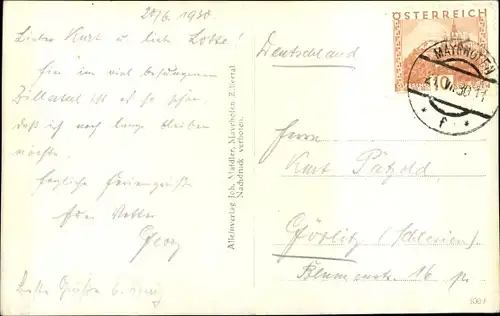 20/6 1930.
Lieber Kurt u. liebe Lotte!
Hier im viel besungenen
Zillertal ist es so schön,
daß ich noch lange bleiben
möchte.
Herzliche Feriengrüße
Euer Vetter
Georg
Alleinverlag Joh. Maidler, Mayrhofen, Zillertal
Nachdruck verboten.
Deutschland
ÖSTERREICH
10
MAYRHOFEN
21.VI.30.11
* f *
Herrn
Kurt Pätzold
Görlitz (Schlesien)
Blumenstr. 16